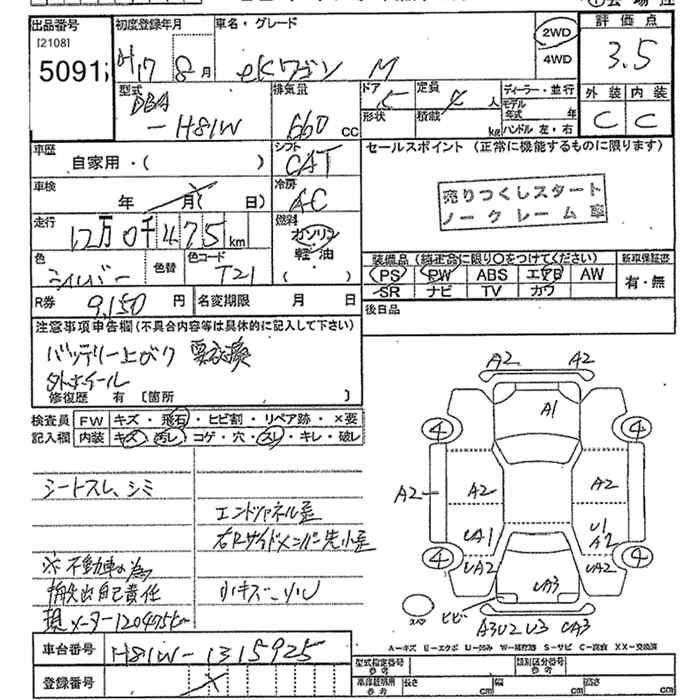 出品番号
[2108]
5091
初度登録年月
H17 8月
車名・グレード
eKワゴン M
2WD
4WD
評価点
3.5
外装 内装
C C
型式
DBA
-H81W
排気量
660 CC
ドア 5
定員 4 人
形状
積載 kg
ディーラー・並行
モデル年式 年
ハンドル 左・右
車歴
自家用・( )
シフト
CAT
セールスポイント (正常に機能するものに限ります)
売りつくしスタート
ノークレーム車
車検
年 月( 日)
冷房
AC
走行
12万0千475km
燃料
ガソリン
軽・油
( )
色
シルバー
色替
色コード
T21
装備品(純正品に限り○をつけてください)
PS PW ABS エアB AW
SR ナビ TV カワ
新車保証書
有・無
R券
9,150 円
名変期限 月 日
後日品
注意事項申告欄(不具合内容等は具体的に記入して下さい)
バッテリー上がり 要交換
外ホイール
修復歴 有 [箇所 ]
検査員 FW キズ・飛石・ヒビ割・リペア跡・×要
記入欄 内装 キズ・汚レ・コゲ・穴・スレ・キレ・破レ
シートスレ、シミ
エンドパネル歪
右Rサイドメンバー先小歪
※不動車の為
搬出自己責任
小キズ・小U
現メーター120475km
A2 A2
A1
4 4
A2 A2 A2
UA1 U1
A2
4 UA2 UA2 4
UA3
ヒビ
スペア
A3U2 U3 UA3
A-キズ E-エクボ U-凹み W-補修跡 S-サビ C-腐食 XX-交換済
車台番号
H81W-1315925
登録番号
型式指定番号
参考
類別区分番号
参考
車庫証明用
参考
長さ cm 幅 cm 高さ cm